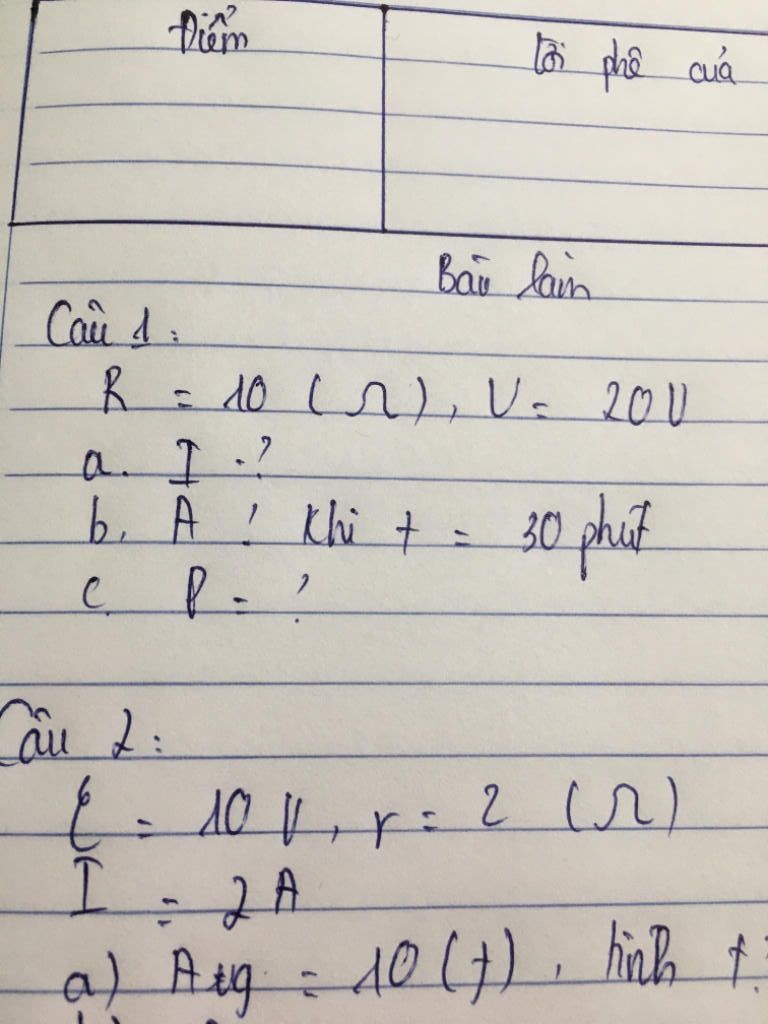 Điểm
Lời phê của
Bài làm
Câu 1:
R = 10 (Ω), U = 20V
a. I = ?
b. A ? khi t = 30 phút
c. P = ?
Câu 2:
ξ = 10 V, r = 2 (Ω)
I = 2A
a) Atg = 10 (J), tính t?